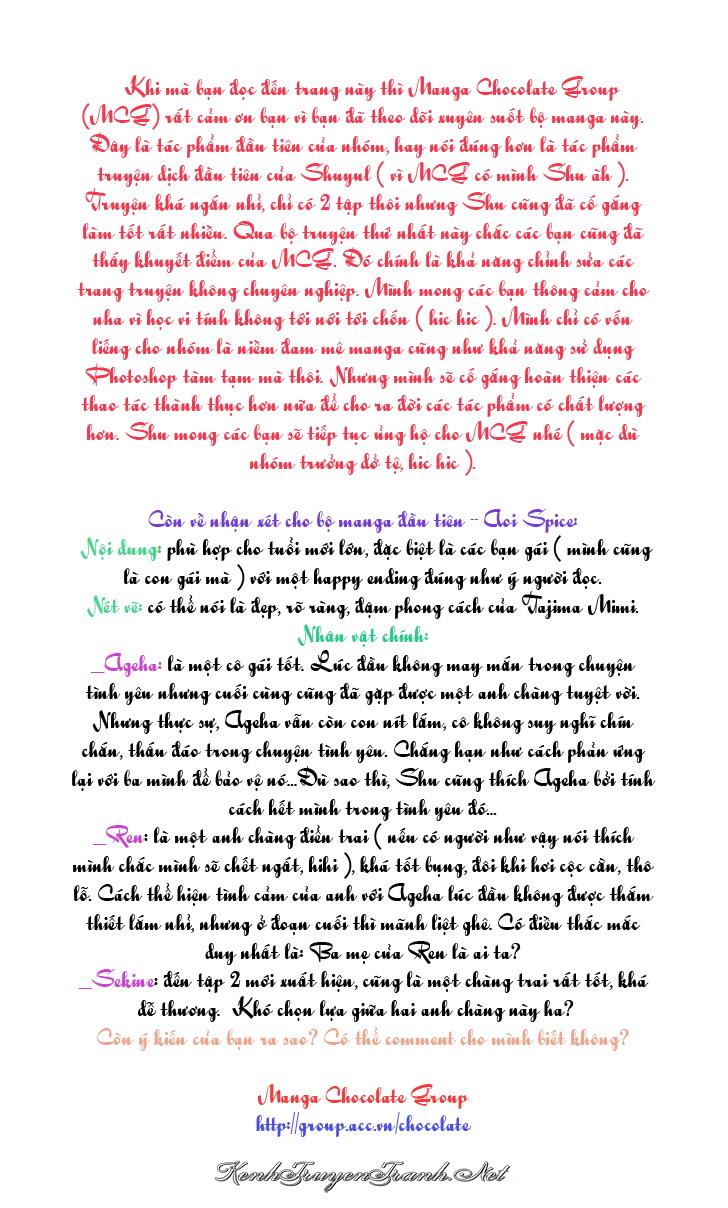 Khi mà bạn đọc đến trang này thì Manga Chocolate Group
(MCG) rất cảm ơn bạn vì bạn đã theo dõi xuyên suốt bộ manga này.
Đây là tác phẩm đầu tiên của nhóm, hay nói đúng hơn là tác phẩm
truyện dịch đầu tiên của Shuyul ( vì MCG có mình Shu àh ).
Truyện khá ngắn nhỉ, chỉ có 2 tập thôi nhưng Shu cũng đã cố gắng
làm tốt rất nhiều. Qua bộ truyện thứ nhất này chắc các bạn cũng đã
thấy khuyết điểm của MCG. Đó chính là khả năng chỉnh sửa các
trang truyện không chuyên nghiệp. Mình mong các bạn thông cảm cho
nha vì học vi tính không tới nới tới chốn ( hic hic ). Mình chỉ có vốn
liếng cho nhóm là niềm đam mê manga cũng như khả năng sử dụng
Photoshop tàm tạm mà thôi. Nhưng mình sẽ cố gắng hoàn thiện các
thao tác thành thục hơn nữa để cho ra đời các tác phẩm có chất lượng
hơn. Shu mong các bạn sẽ tiếp tục ủng hộ cho MCG nhé ( mặc dù
nhóm trưởng dở tệ, hic hic ).
Còn về nhận xét cho bộ manga đầu tiên -- Aoi Spice:
Nội dung: phù hợp cho tuổi mới lớn, đặc biệt là các bạn gái ( mình cũng
là con gái mà ) với một happy ending đúng như ý người đọc.
Nét vẽ: có thể nói là đẹp, rõ ràng, đậm phong cách của Tajima Mimi.
Nhân vật chính:
_Ageha: là một cô gái tốt. Lúc đầu không may mắn trong chuyện
tình yêu nhưng cuối cùng cũng đã gặp được một anh chàng tuyệt vời.
Nhưng thực sự, Ageha vẫn còn con nít lắm, cô không suy nghĩ chín
chắn, thấu đáo trong chuyện tình yêu. Chẳng hạn như cách phản ứng
lại với ba mình để bảo vệ nó...Dù sao thì, Shu cũng thích Ageha bởi tính
cách hết mình trong tình yêu đó...
_Ren: là một anh chàng điển trai ( nếu có người như vậy nói thích
mình chắc mình sẽ chết ngất, hihi ), khá tốt bụng, đôi khi hơi cộc cằn, thô
lỗ. Cách thể hiện tình cảm của anh với Ageha lúc đầu không được thắm
thiết lắm nhỉ, nhưng ở đoạn cuối thì mãnh liệt ghê. Có điều thắc mắc
duy nhất là: Ba mẹ của Ren là ai ta?
_Sekine: đến tập 2 mới xuất hiện, cũng là một chàng trai rất tốt, khá
dễ thương. Khó chọn lựa giữa hai anh chàng này ha?
Còn ý kiến của bạn ra sao? Có thể comment cho mình biết không?
Manga Chocolate Group
http://group.acc.vn/chocolate
KenhTruyenTranh.Net